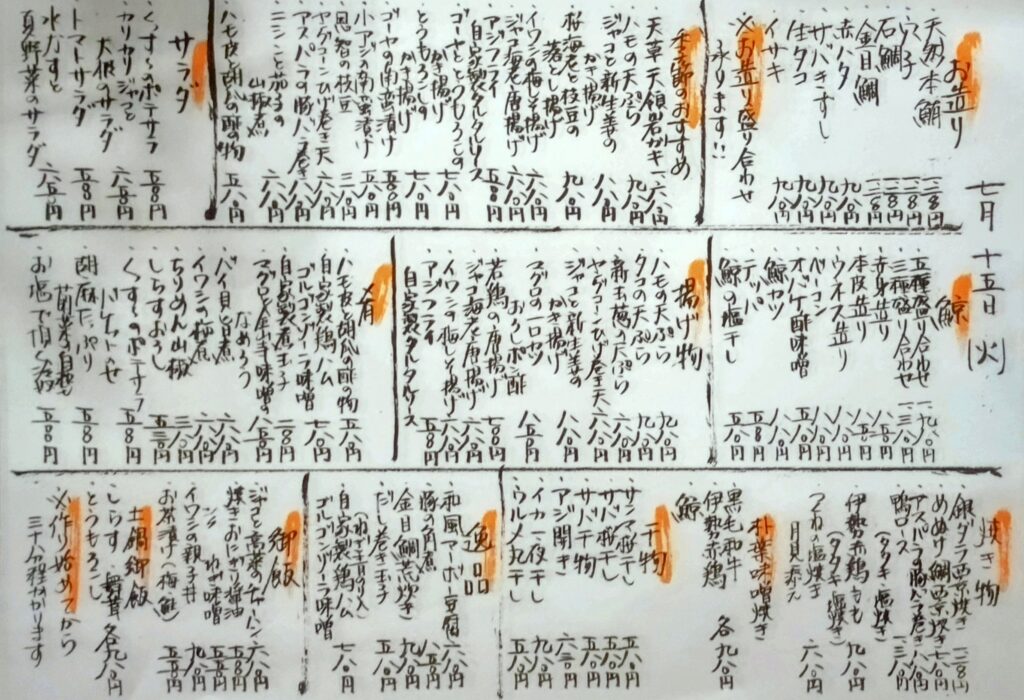 七月十五日(火)
お造り
天然本鮪 一二八〇円
ウニ 一二八〇円
石鯛 一二八〇円
金目鯛 一二八〇円
赤バタ 九八〇円
サバきずし 九八〇円
生タコ 九八〇円
イサキ 九八〇円
※お造り盛り合わせ
承ります!!
季節のおすすめ
天草天領岩ガキ 一六八〇円
ハモの天ぷら 九八〇円
ジャコと新生姜の
かき揚げ 八八〇円
桜海老と枝豆の
落とし揚げ 九八〇円
イワシの梅しそ揚げ 六八〇円
ジャコ海老唐揚げ 六八〇円
アジフライ
自家製タルタルソース 五八〇円
ゴーヤととうもろこしの
かき揚げ 七八〇円
とうもろこしの
かき揚げ 七八〇円
ゴーヤの南蛮漬け 五八〇円
小アジの南蛮漬け 五八〇円
枝豆 三八〇円
ヤングコーンひげ巻き天 六八〇円
アスパラの豚バラ巻き 六八〇円
山椒煮 六八〇円
ハモ皮と胡瓜の酢の物 五八〇円
サラダ
くっすーのポテサラ 五八〇円
カリカリジャコと
大根のサラダ 六八〇円
トマトサラダ 五八〇円
水なすと
夏野菜のサラダ 六八〇円
鯨
五種盛り合わせ
三種盛り合わせ
赤身造り
本皮造り
ウネス造り
ベーコン
オバケ酢味噌
鯨カツ
テッパ
鯨の塩干し
揚げ物
ハモの天ぷら 九八〇円
タコの天ぷら 九八〇円
新玉葱の天ぷら 六八〇円
ヤングコーンひげ巻き天 六八〇円
ジャコと新生姜の
かき揚げ 八八〇円
マグロの一口カツ
おろしポン酢 八五〇円
若鶏の唐揚げ
ジャコ海老唐揚げ
イワシの梅しそ揚げ 六八〇円
アジフライ
自家製タルタルソース 五八〇円
肴
ハモ皮と胡瓜の酢の物 五八〇円
自家製鶏ハム
ゴルゴンゾーラ味噌 七八〇円
自家製煮玉子
マグロと金山寺味噌の
なめろう 八五〇円
バイ貝旨煮 六八〇円
イワシの梅煮 六八〇円
ちりめん山椒 三八〇円
しらすおろし
くっすーのポテサラ 五八〇円
バケット
胡麻だれ 五八〇円
お塩で頂く 五八〇円
焼き物
銀ダラ西京焼き 一二八〇円
めぬけ鯛西京焼き
アスパラの豚バラ巻き
鴨ロース
(タタキ・塩焼き)
伊勢赤鶏もも
(タタキ・塩焼き) 九八〇円
つくねの塩焼き
月見 六八〇円
朴葉味噌焼き
黒毛和牛
伊勢赤鶏
鯨 各九八〇円
干物
サンマ桜干し 五八〇円
サバ桜干し 五八〇円
サバ干物 五八〇円
アジ開き 六三〇円
イカ一夜干し 九八〇円
ウルメ丸干し 五八〇円
逸品
和風アボ豆腐 六八〇円
豚の角煮
金目鯛荒炊き 九八〇円
だし巻き玉子 五八〇円
自家製鶏ハム
ゴルゴンゾーラ味噌 七八〇円
御飯
ジャコと高菜のチャーハン 六八〇円
焼きおにぎり醤油 五八〇円
〃 味噌 五八〇円
イワシの親子丼 九八〇円
お茶漬け(梅・鮭) 五五〇円
土鍋御飯
しらす 舞茸 各九八〇円
とうもろこし
※作り始めてから
三十分程かかります